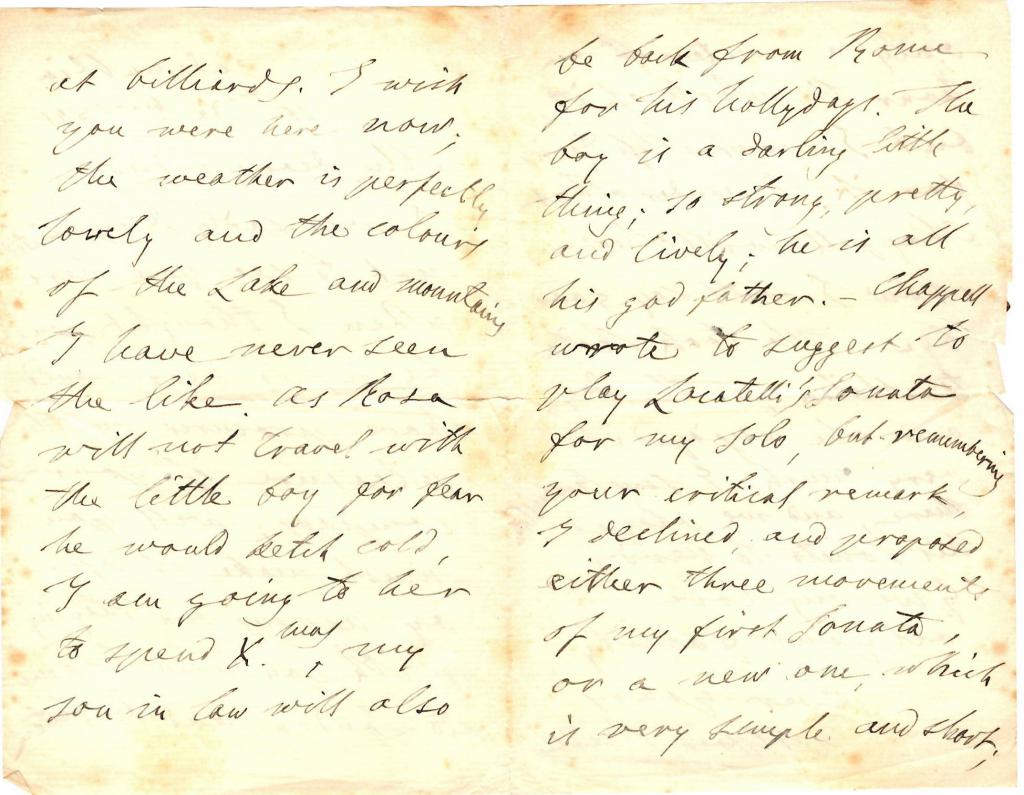 at billiards. I wish
you were here now,
the weather is perfectly
lovely and the colours
of the Lake and mountains
I have never seen
the like. As Rosa
will not travel with
the little boy for fear
he would ketch cold,
I am going to her
to spend X.mas, my
son in law will also
be back from Rome
for his hollydays. The
boy is a darling little
thing; so strong, pretty,
and lively; he is all
his god father. – Chappell
wrote to suggest to
play Locatelli's Sonata
for my solo, but remembering
your critical remark,
I declined, and proposed
either three movements
of my first Sonata,
or a new one, which
is very simple and short,